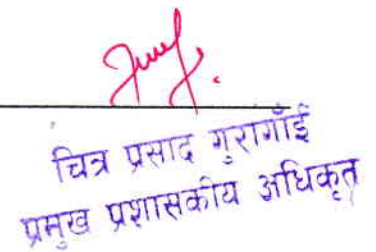 चित्र प्रसाद गुरागाँई
प्रमुख प्रशासकीय अधिकृत